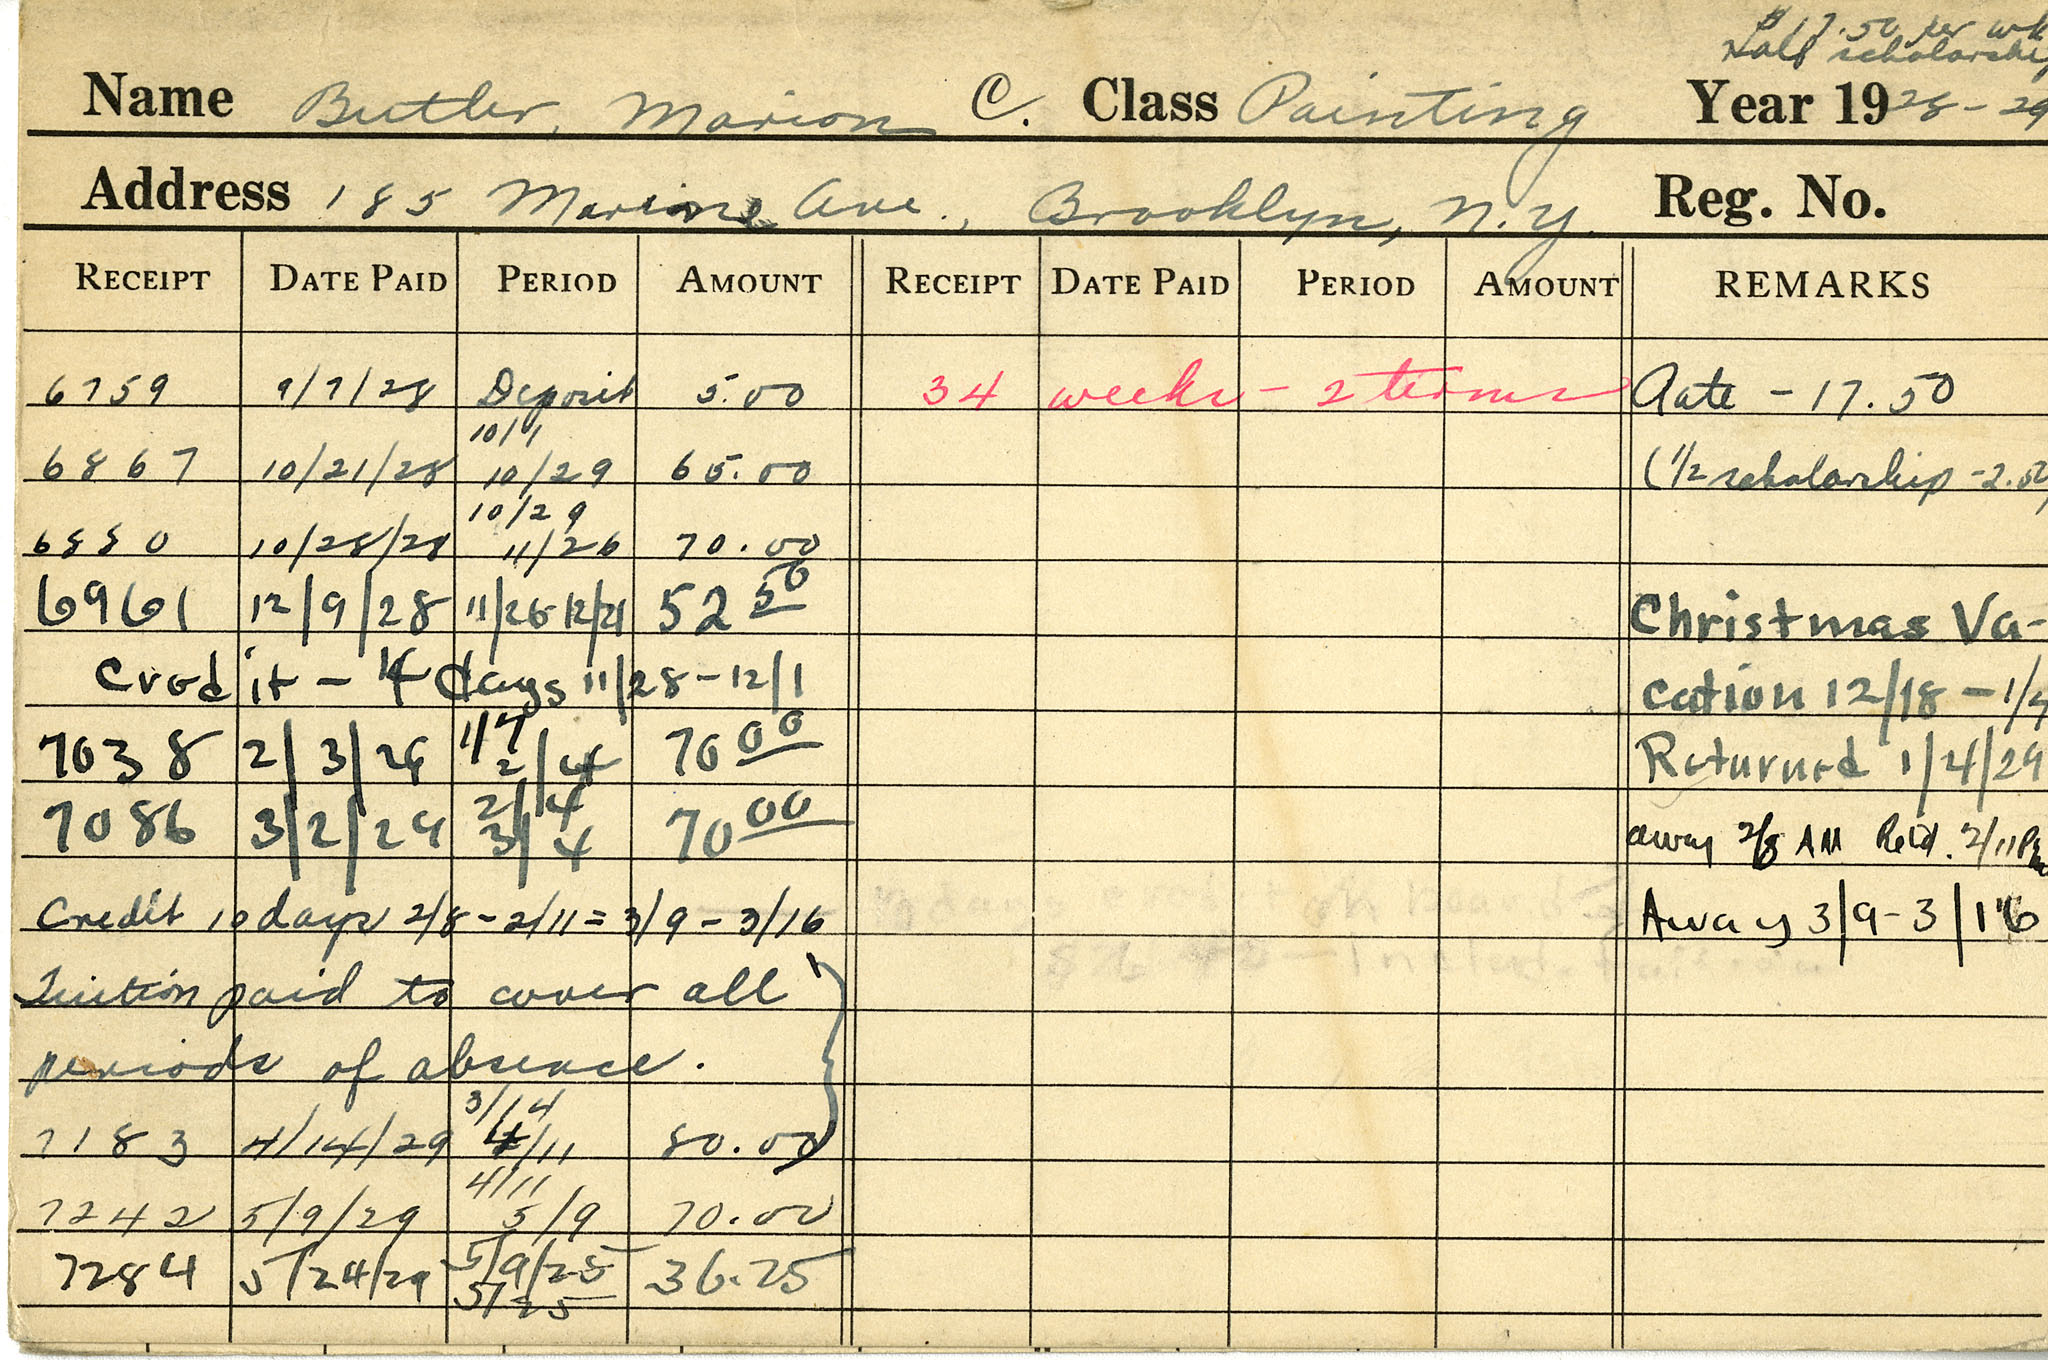 $17.50 per wk
Half scholarship
Name Butler, Marion C. Class Painting Year 1928-29
Address 185 Marine Ave., Brooklyn, N.Y. Reg. No.
RECEIPT DATE PAID PERIOD AMOUNT RECEIPT DATE PAID PERIOD AMOUNT REMARKS
6759 9/7/28 Deposit 5.00 34 weeks - 2 terms Rate - 17.50
10/1
6867 10/21/28 10/29 65.00 (1/2 scholarship - 2.50
10/29
6880 10/28/28 11/26 70.00
6961 12/9/28 11/26 12/21 52 50 Christmas Va-
Credit - 4 days 11/28 - 12/1 cation 12/18 - 1/4
1/7
7038 2/3/29 2/4 70 00 Returned 1/4/29
2/4
7086 3/2/29 3/4 70 00 away 2/8 AM Ret'd. 2/11 PM
Credit 10 days 2/8 - 2/11 = 3/9 - 3/16 Away 3/9 - 3/16
Tuition paid to cover all
periods of absence.
3/14
7183 4/14/29 4/11 80.00
4/11
7242 5/9/29 5/9 70.00
7284 5/24/29 5/9/25 36.25
5/25